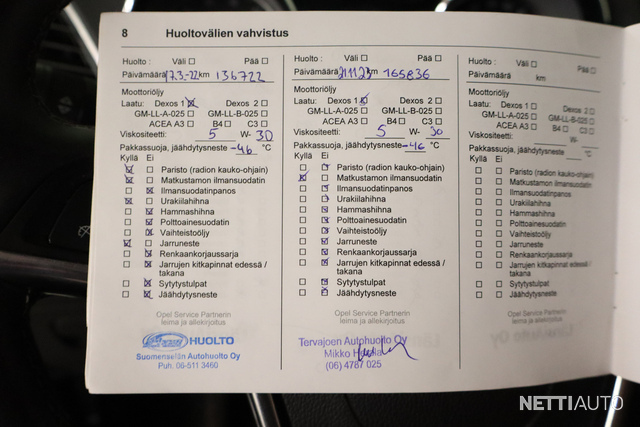 8 Huoltovälien vahvistus
Huolto : Väli ☐ Pää ☐
Päivämäärä 17.3.-22 km 136722
Moottoriöljy
Laatu: Dexos 1 ☒ Dexos 2 ☐
GM-LL-A-025 ☐ GM-LL-B-025 ☐
ACEA A3 ☐ B4 ☐ C3 ☐
Viskositeetti: 5 W- 30
Pakkassuoja, jäähdytysneste -46 °C
Kyllä Ei
Paristo (radion kauko-ohjain)
Matkustamon ilmansuodatin
Ilmansuodatinpanos
Urakiilahihna
Hammashihna
Polttoainesuodatin
Vaihteistoöljy
Jarruneste
Renkaankorjaussarja
Jarrujen kitkapinnat edessä /
takana
Sytytystulpat
Jäähdytysneste
Opel Service Partnerin
leima ja allekirjoitus
HUOLTO
Suomenselän Autohuolto Oy
Puh. 06-511 3460
Huolto : Väli ☐ Pää ☐
Päivämäärä 21.11.23 km 165836
Moottoriöljy
Laatu: Dexos 1 ☒ Dexos 2 ☐
GM-LL-A-025 ☐ GM-LL-B-025 ☐
ACEA A3 ☐ B4 ☐ C3 ☐
Viskositeetti: 5 W- 30
Pakkassuoja, jäähdytysneste -46 °C
Kyllä Ei
Paristo (radion kauko-ohjain)
Matkustamon ilmansuodatin
Ilmansuodatinpanos
Urakiilahihna
Hammashihna
Polttoainesuodatin
Vaihteistoöljy
Jarruneste
Renkaankorjaussarja
Jarrujen kitkapinnat edessä /
takana
Sytytystulpat
Jäähdytysneste
Opel Service Partnerin
leima ja allekirjoitus
Tervajoen Autohuolto Oy
Mikko
(06) 4787 025
Huolto : Väli ☐ Pää ☐
Päivämäärä km
Moottoriöljy
Laatu: Dexos 1 ☐ Dexos 2 ☐
GM-LL-A-025 ☐ GM-LL-B-025 ☐
ACEA A3 ☐ B4 ☐ C3 ☐
Viskositeetti: W-
Pakkassuoja, jäähdytysneste °C
Kyllä Ei
Paristo (radion kauko-ohjain)
Matkustamon ilmansuodatin
Ilmansuodatinpanos
Urakiilahihna
Hammashihna
Polttoainesuodatin
Vaihteistoöljy
Jarruneste
Renkaankorjaussarja
Jarrujen kitkapinnat edessä /
takana
Sytytystulpat
Jäähdytysneste
Opel Service Partnerin
leima ja allekirjoitus
NETTIAUTO